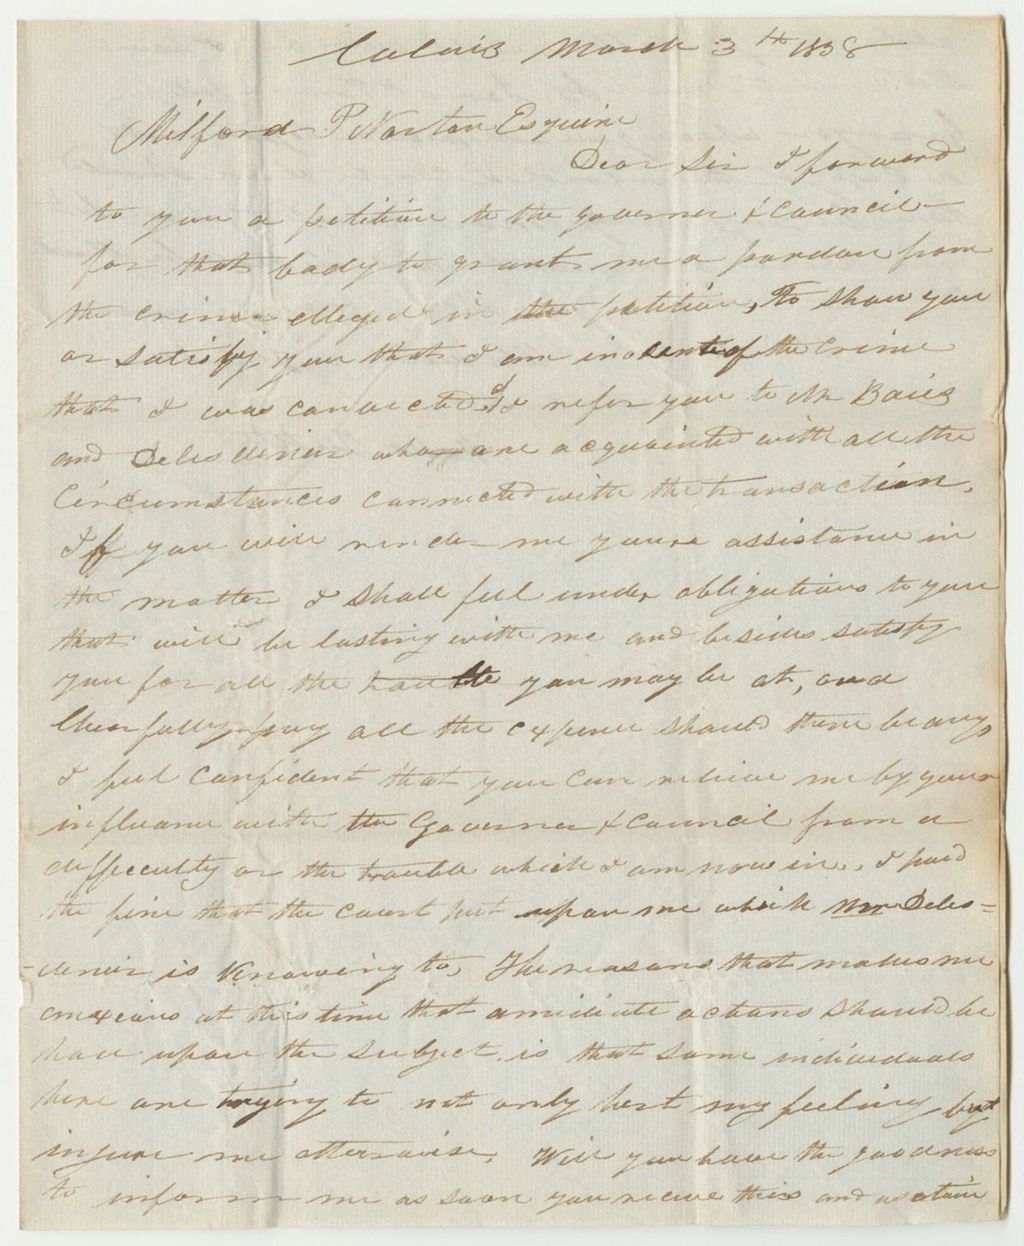 Calais March 3th 1838
Milford P Norton Esquire
Dear Sir I forward
to you a petition to the governer & council
for that body to grant me a pardon from
the crimes elleged in the petition, To show you
or satisfy you that I am inosent of the crime
that I was convicted of I refer you to Mr Bais
and Delesdenier who are acquainted with all the
Circumstances connected with the transaction.
Iff you will render me youre assistance in
the matter I shall feel under obligations to you
that will be lasting with me and besides satisfy
you for all the trouble you may be at, and
Chearfully pay all the expence should there be any,
I feel confident that you can relieve me by your
influance with the Governer & council from a
diffeculty or the trouble which I am now in., I paid
the fine that the court put upon me which Mr Deles=
-denier is Knowing to, The reasons that makes me
anxious at this time that amidiate actions should be
had upon the subject is that some individuals
here are trying to not only hert my feeling but
injure me otherwise. Will you have the goodness
to inform me as soon you receve this and asertain